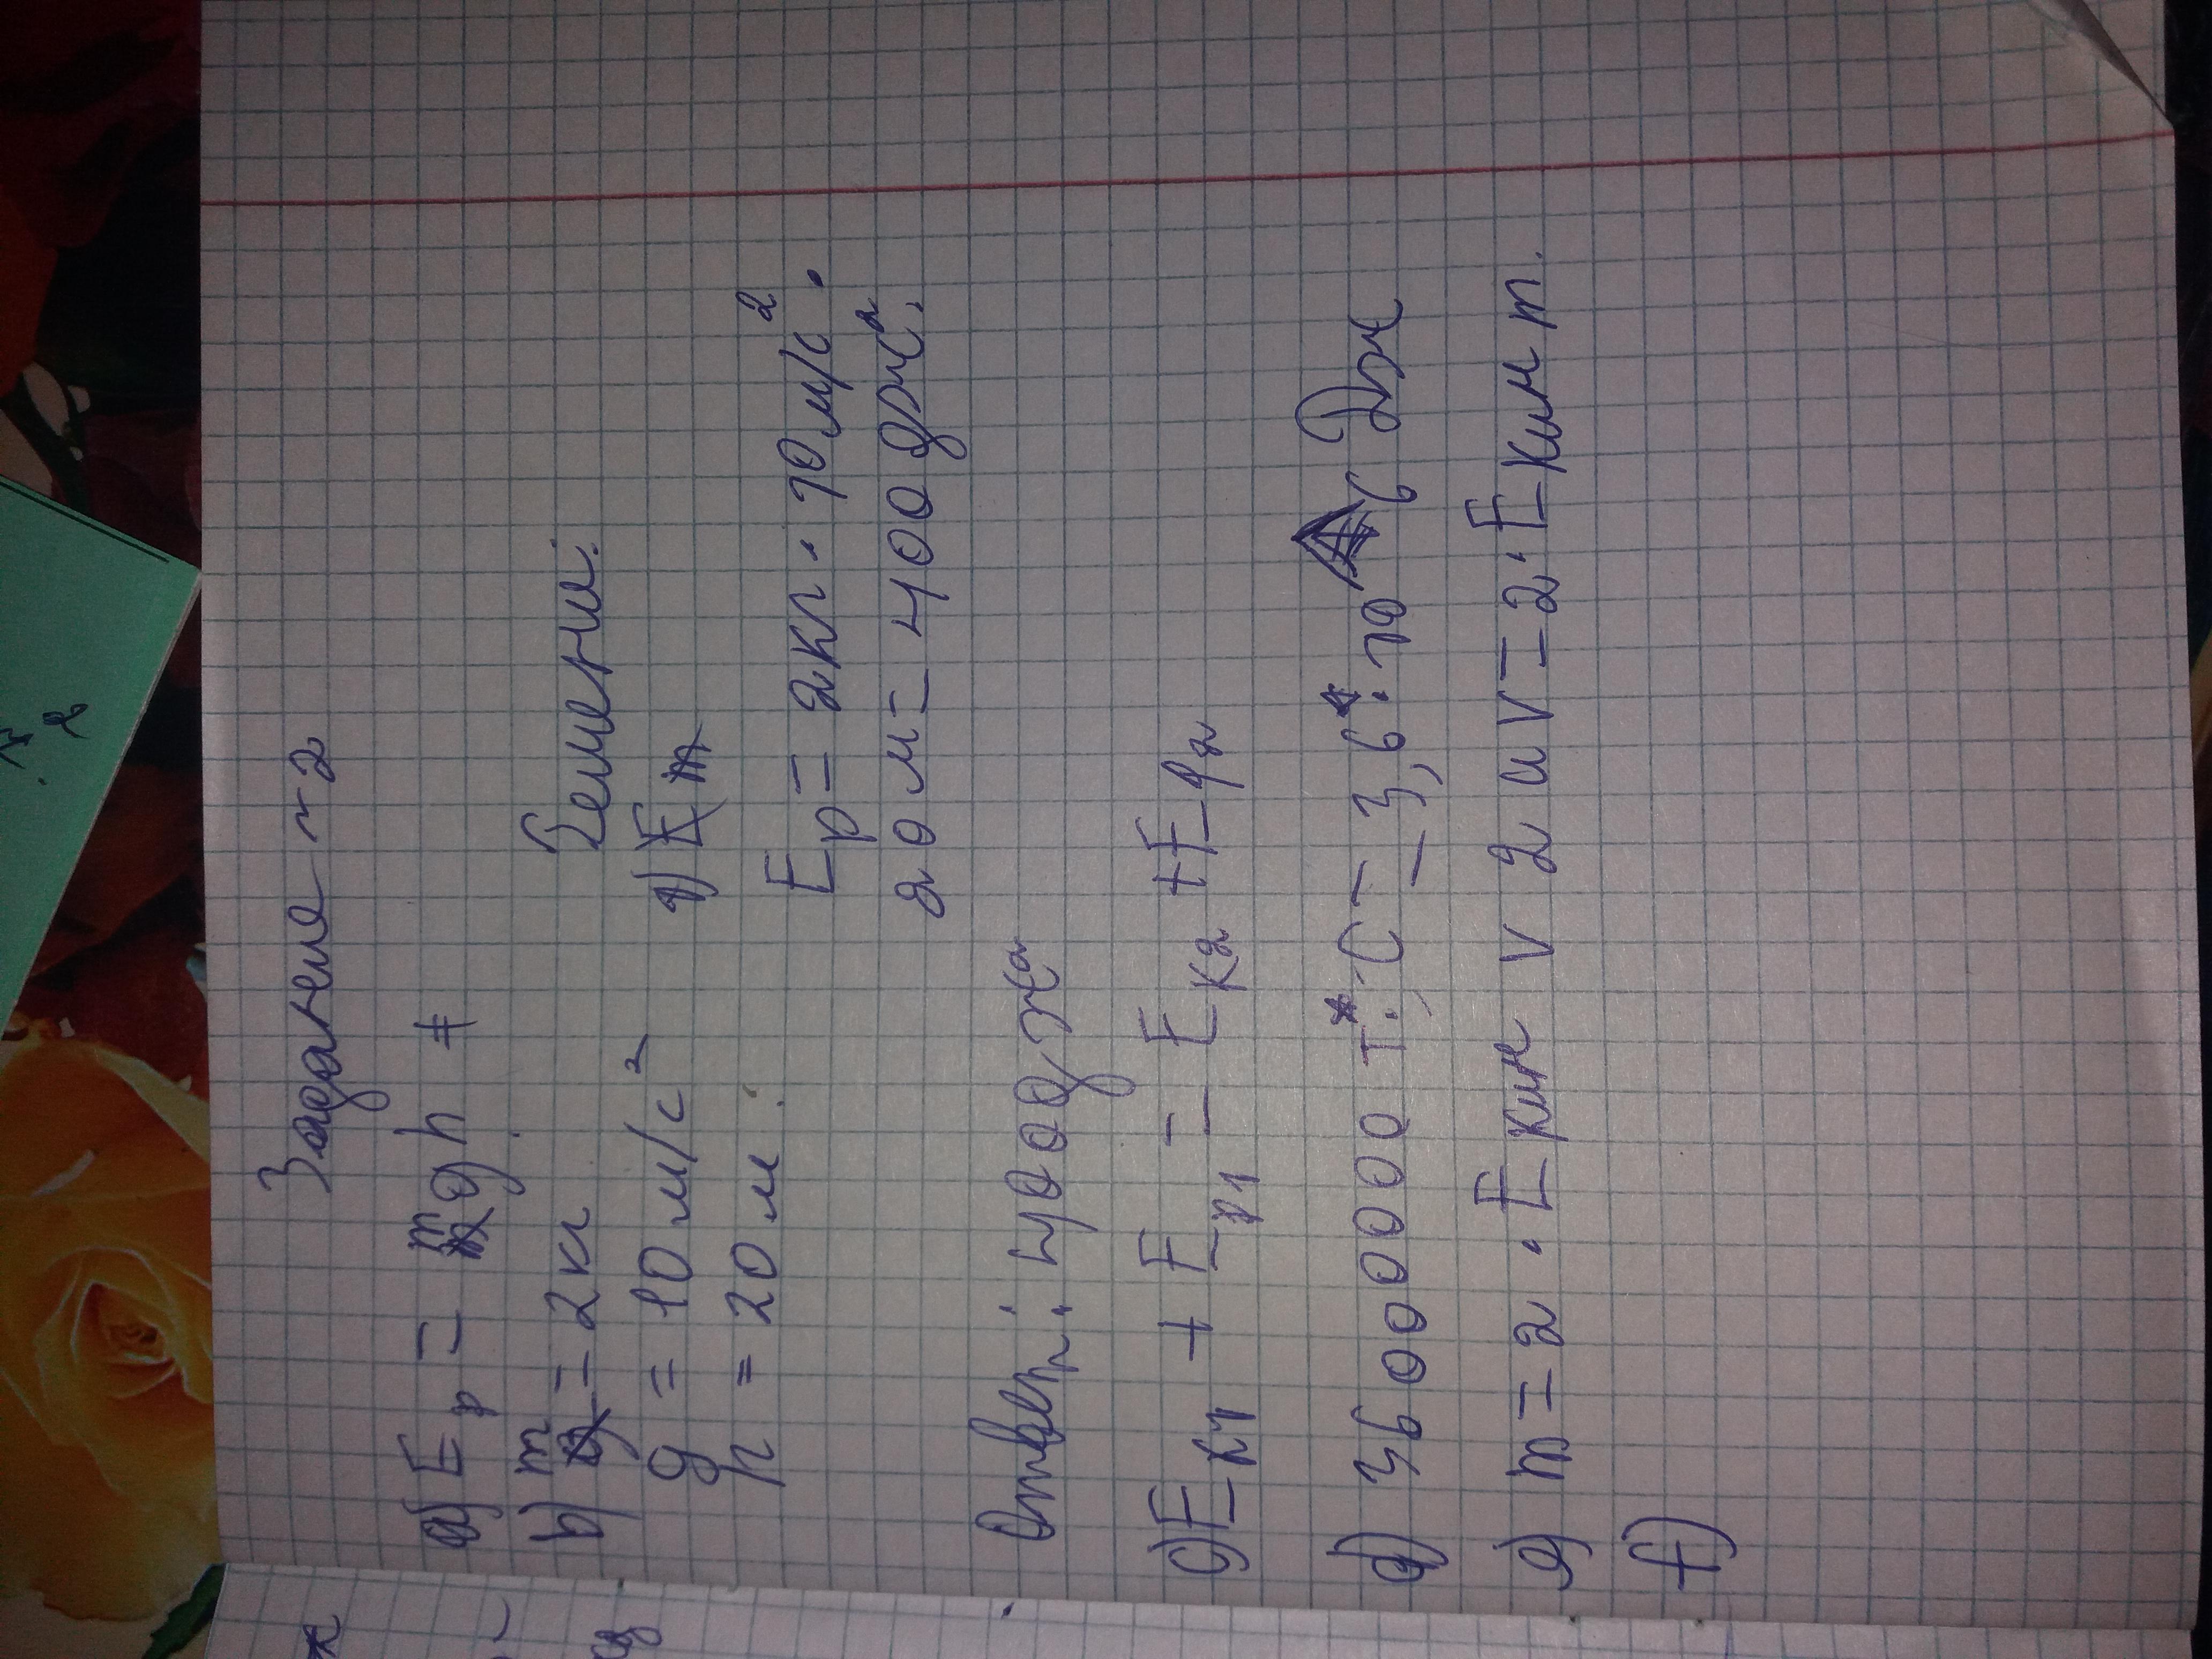 Задание n 2
a) Ep = mgh
b) m = 2кг
g = 10 м/с²
h = 20 м.
Решени:
Ep = 2кг · 10 м/с² ·
20 м = 400 дж
Ответ: 400 дж
c) Eк1 + Ep1 = Eк2 + Ep2
d) 3600000 т. с = 3,6 · 10 6 Дж
e) m = 2 · Eкин v 2 и v = 2 · Eкин m.
f)